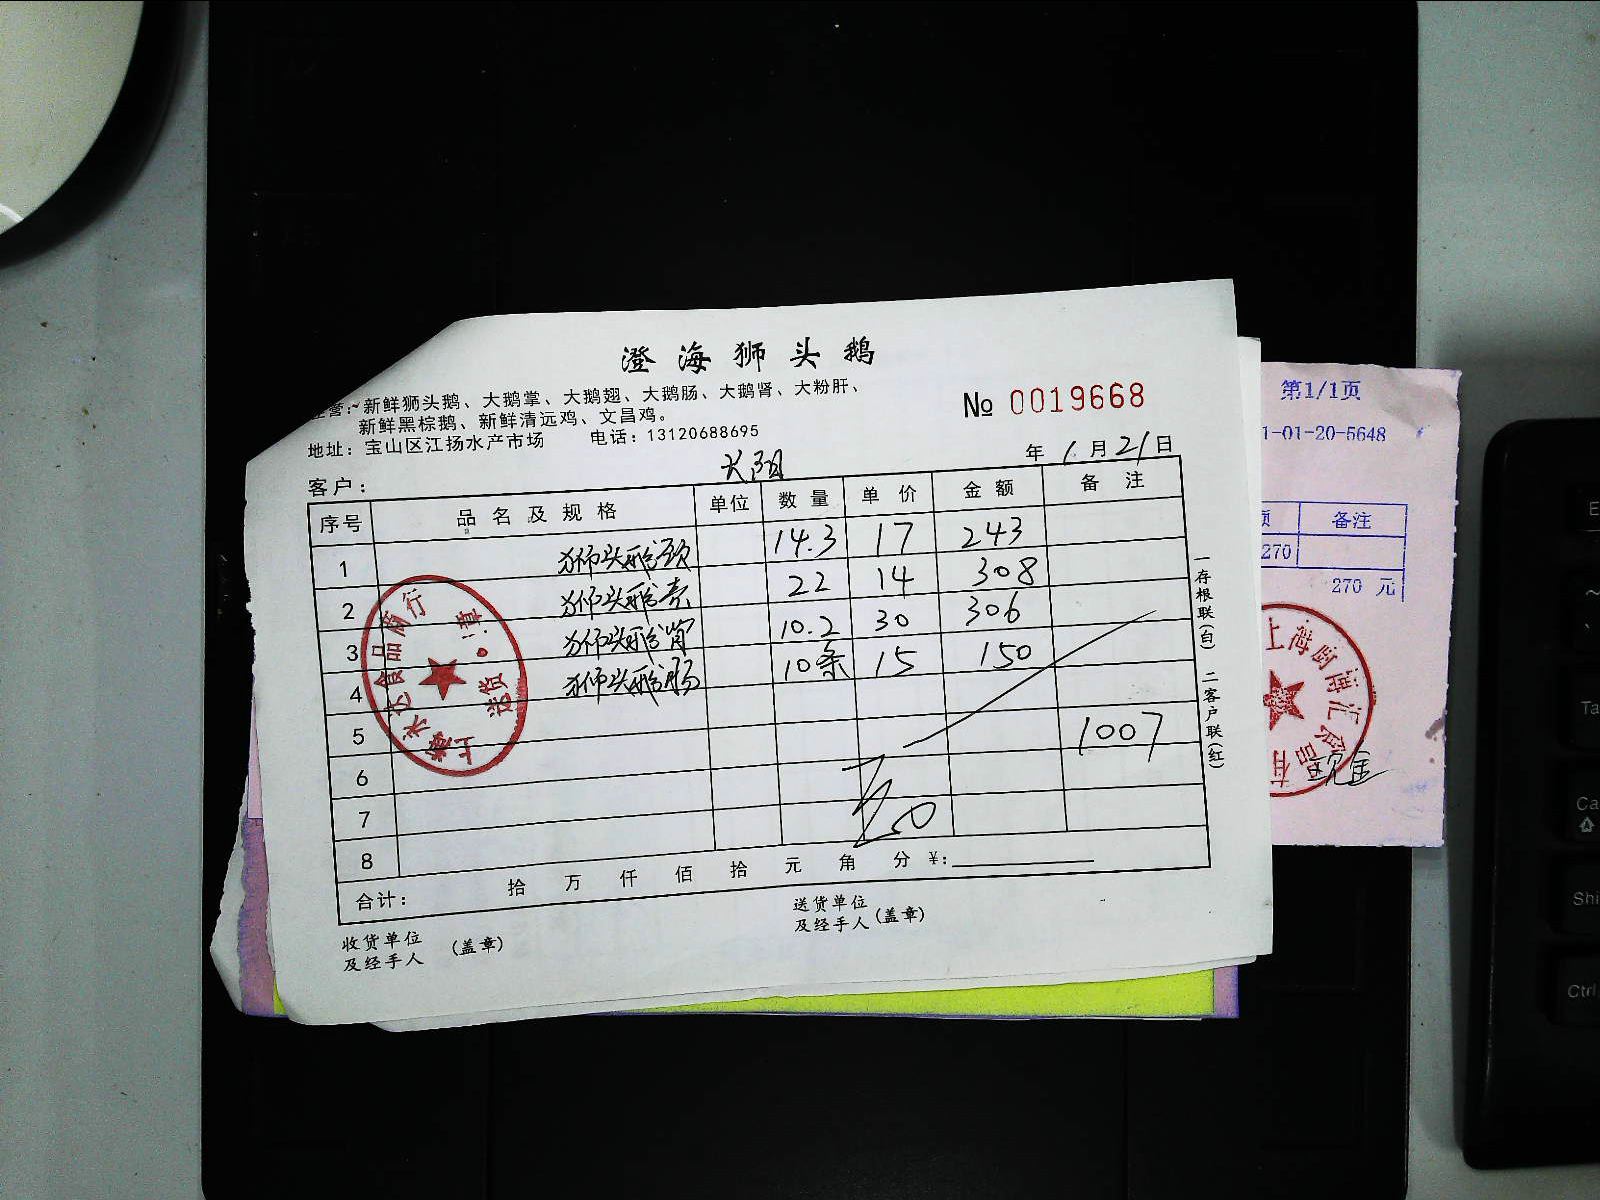 澄海狮头鹅
经营:~新鲜狮头鹅、大鹅掌、大鹅翅、大鹅肠、大鹅肾、大粉肝、
新鲜黑棕鹅、新鲜清远鸡、文昌鸡。
№ 0019668
地址:宝山区江扬水产市场 电话:13120688695
年 1 月 21 日
客户: 长阳
序号 品名及规格 单位 数量 单价 金额 备注
1 狮头鹅颈 14.3 17 243
2 狮头鹅壳 22 14 308
3 狮头鹅肾 10.2 30 306
4 狮头鹅肠 10条 15 150
5 1007
6
7
8
合计: 拾 万 仟 佰 拾 元 角 分 ¥:
收货单位及经手人 (盖章)
送货单位及经手人 (盖章)
一存根联(白) 二客户联(红)
第1/1页
1-01-20-5648
备注
270
270 元
现金